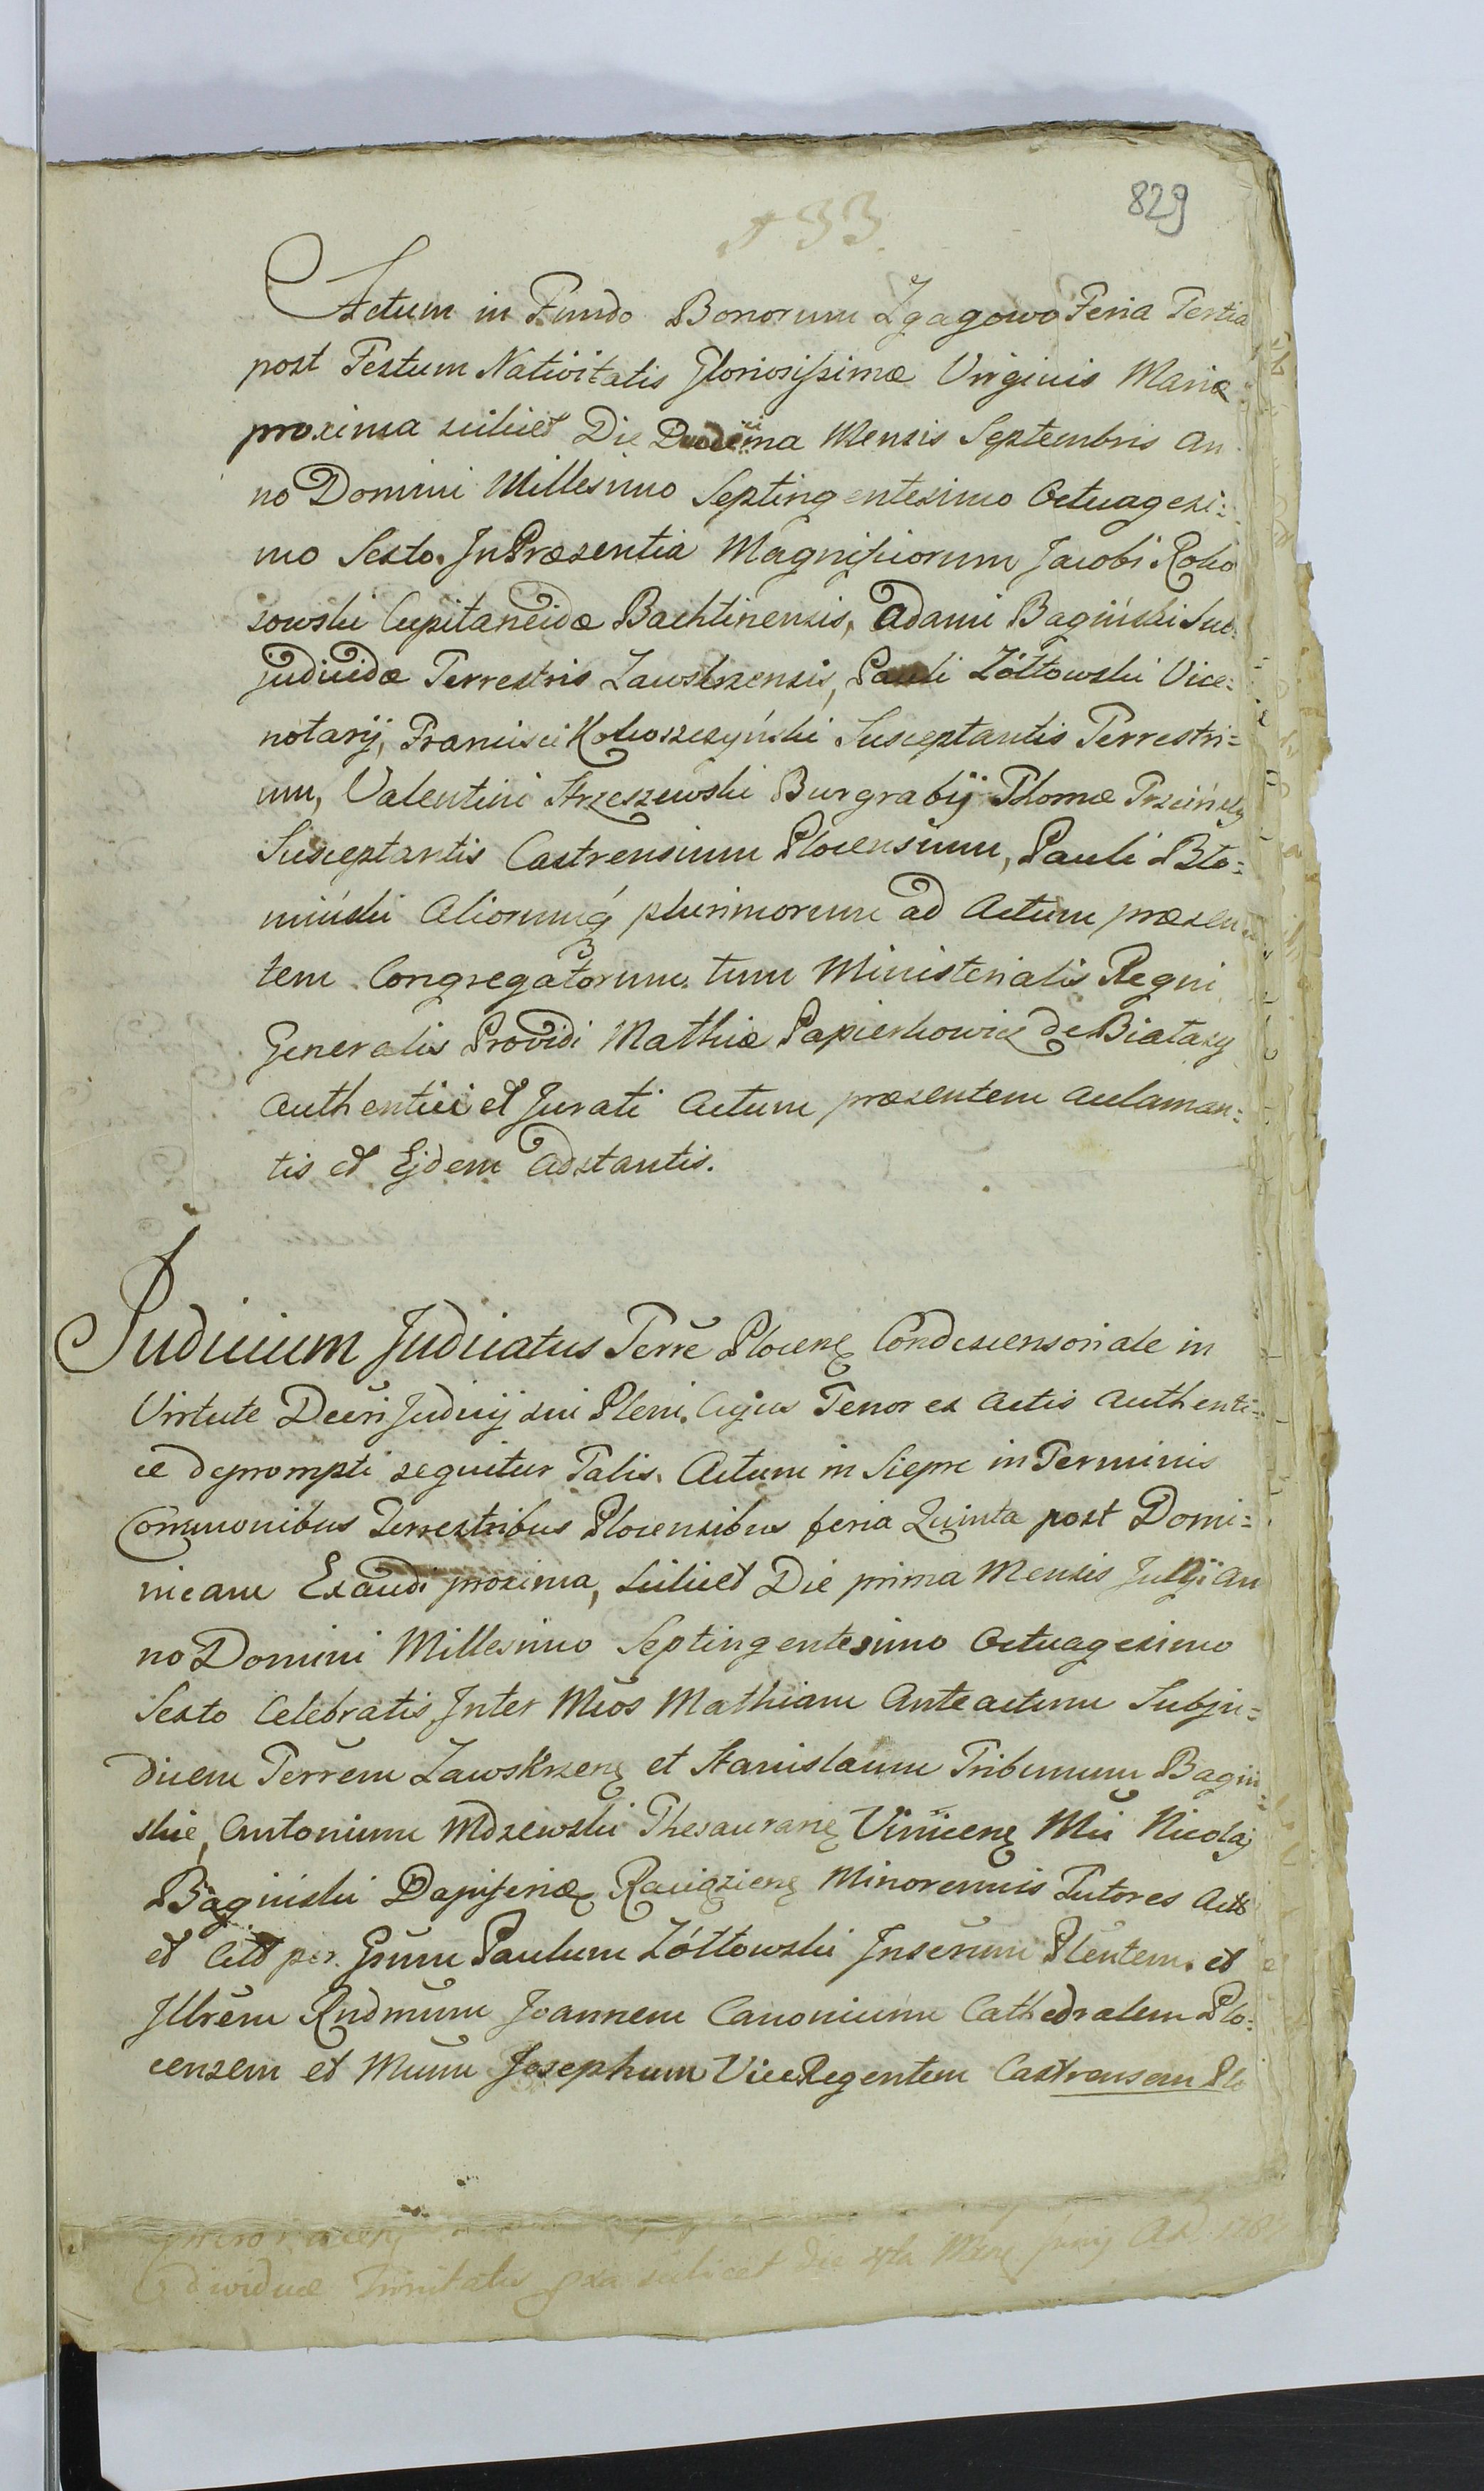 829
133
Actum in Fundo Bonorum Zgagowo Feria Tertia
post Festum Nativitatis Gloriosissimæ Virginis Mariæ
proxima scilicet Die Duodecima Mensis Septembris An
no Domini Millesimo Septingentesimo Octuagesi=
mo Sexto. In Præsentia Magnificorum Jacobi Roko
sowski Capitaneidæ Bachtinensis, Adami Bagiński Sub=
judicidæ Terrestris Zawskrzensis, Pauli Żółtowski Vice=
notarij, Francisci Kokoszczyński Susceptantis Terrestri=
um, Valentini Strzeszewski Burgrabij Thomæ
Susceptantis Castrensium Plocensium, Pauli Bło=
miński Aliorumq́ plurimorum ad Actum præsen
tem Congregatorum. tum Ministerialis Regni
Generalis Providi Mathiæ Papierkowicz de Białasy
Authentici et Jurati Actum præsentem Aclaman=
tis et Ejdem Adstantis.
Judicium Judicatus Terrē Plocenę Condescensoriale in
Virtute Decri Judicij sui Pleni. Cujus Tenor ex Actis Authenti=
ce deprompti sequitur Talis. Actum in Siepre in Terminis
Communibus Terrestribus Plocensibus feria Quinta post Domi=
nicam Exaudi proxima, scilicet Die prima Mensis Junij An
no Domini Millesimo Septingentesimo Octuagesimo
Sexto Celebratis, Inter Mcos Mathiam Anteactum Subju=
dicem Terrēm Zawskrzenę et Stanislaum Tribunum Bagiń=
skie, Antonium Mdzewski Thesaurarię Vinicenę Mci Nicolaj
Bagiński Dapiferidæ Raciązienę Minorennis Tutores Acts
et Citt per Gsum Paulum Żółtowski Plentem. et
Illrēm Rndmum Joannem Canonicum Cathedralem Plo=
censem et Mcum Josephum ViceRegentem Castrensem Plo
dividuæ Trinitatis pxa scilicet die Mens Junij AD